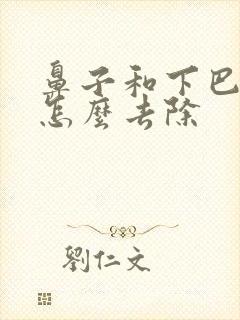 鼻子和下巴
怎麼去除
劉仁文